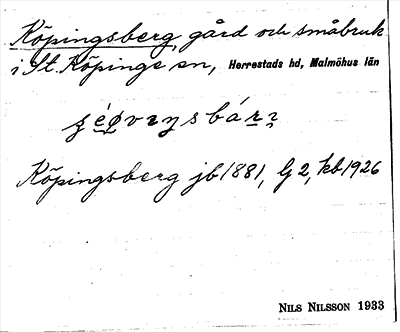 Köpingsberg, gård och småbruk
i St. Köpinge sn, Herrestads hd, Malmöhus län
Köpingsberg jb 1881, G 2, kb 1926
NILS NILSSON 1933